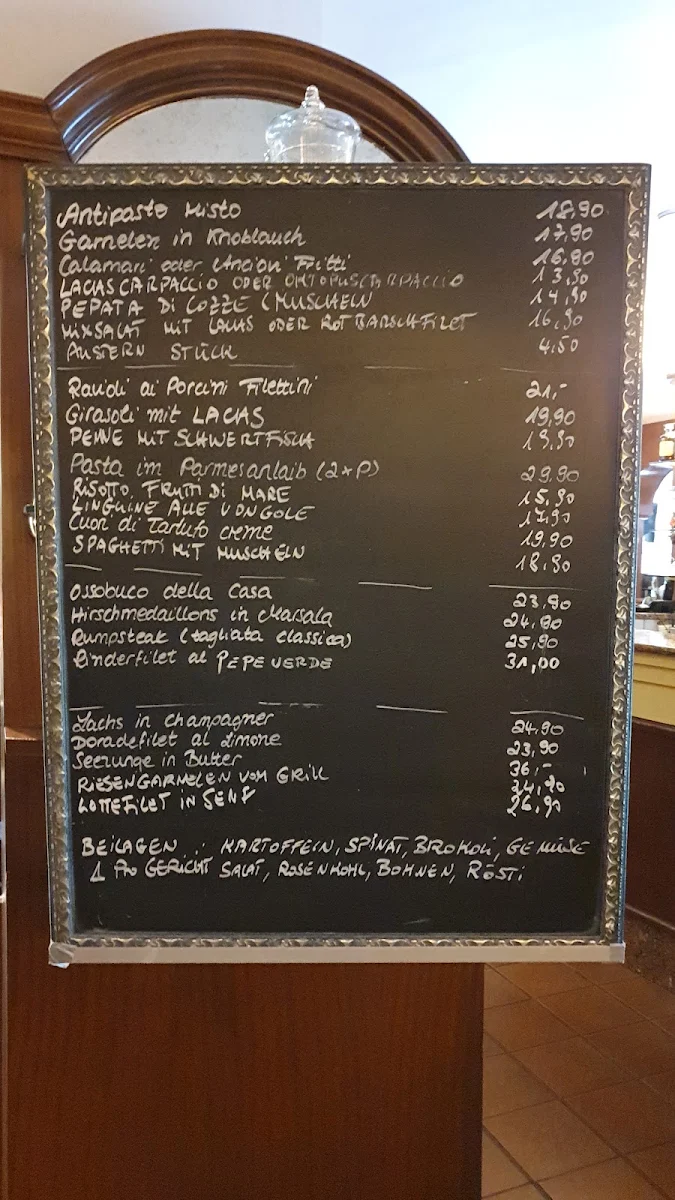 Antipasto Misto 18,90
Garnelen in Knoblauch 17,90
Calamari oder Unciôni Fritti 16,80
LACHSCARPACCIO ODER OKTOPUSCARPACCIO 13,90
PEPATA Di COZZE (MUSCHELN 14,90
MIXSALAT MIT LACHS ODER ROTBARSCHFILET 16,90
AUSTERN STÜCK 4,50
Ravioli ai Porcini Filettini 21,-
Girasoli mit LACHS 19,90
PENNE MIT SCHWERTFISCH 19,90
Pasta im Parmesanlaib (2xP) 29,90
RISOTTO FRUTTI DI MARE 15,90
LINGUINE ALLE VONGOLE 17,90
Cuori di Tartufo creme 19,90
SPAGHETTI MIT MUSCHELN 18,90
Ossobuco della Casa 23,90
Hirschmedaillons in Marsala 24,90
Rumpsteak (tagliata classica) 25,90
Rinderfilet al PEPE VERDE 31,00
Lachs in champagner 24,90
Doradefilet al Limone 23,90
Seezunge in Butter 36,-
RIESENGARNELEN VOM GRILL 24,90
LOTTEFILET IN SENF 26,90
BEILAGEN : KARTOFFELN, SPINAT, BROKOLI, GEMÜSE
1 PRO GERICHT SALAT, ROSENKOHL, BOHNEN, RÖSTI